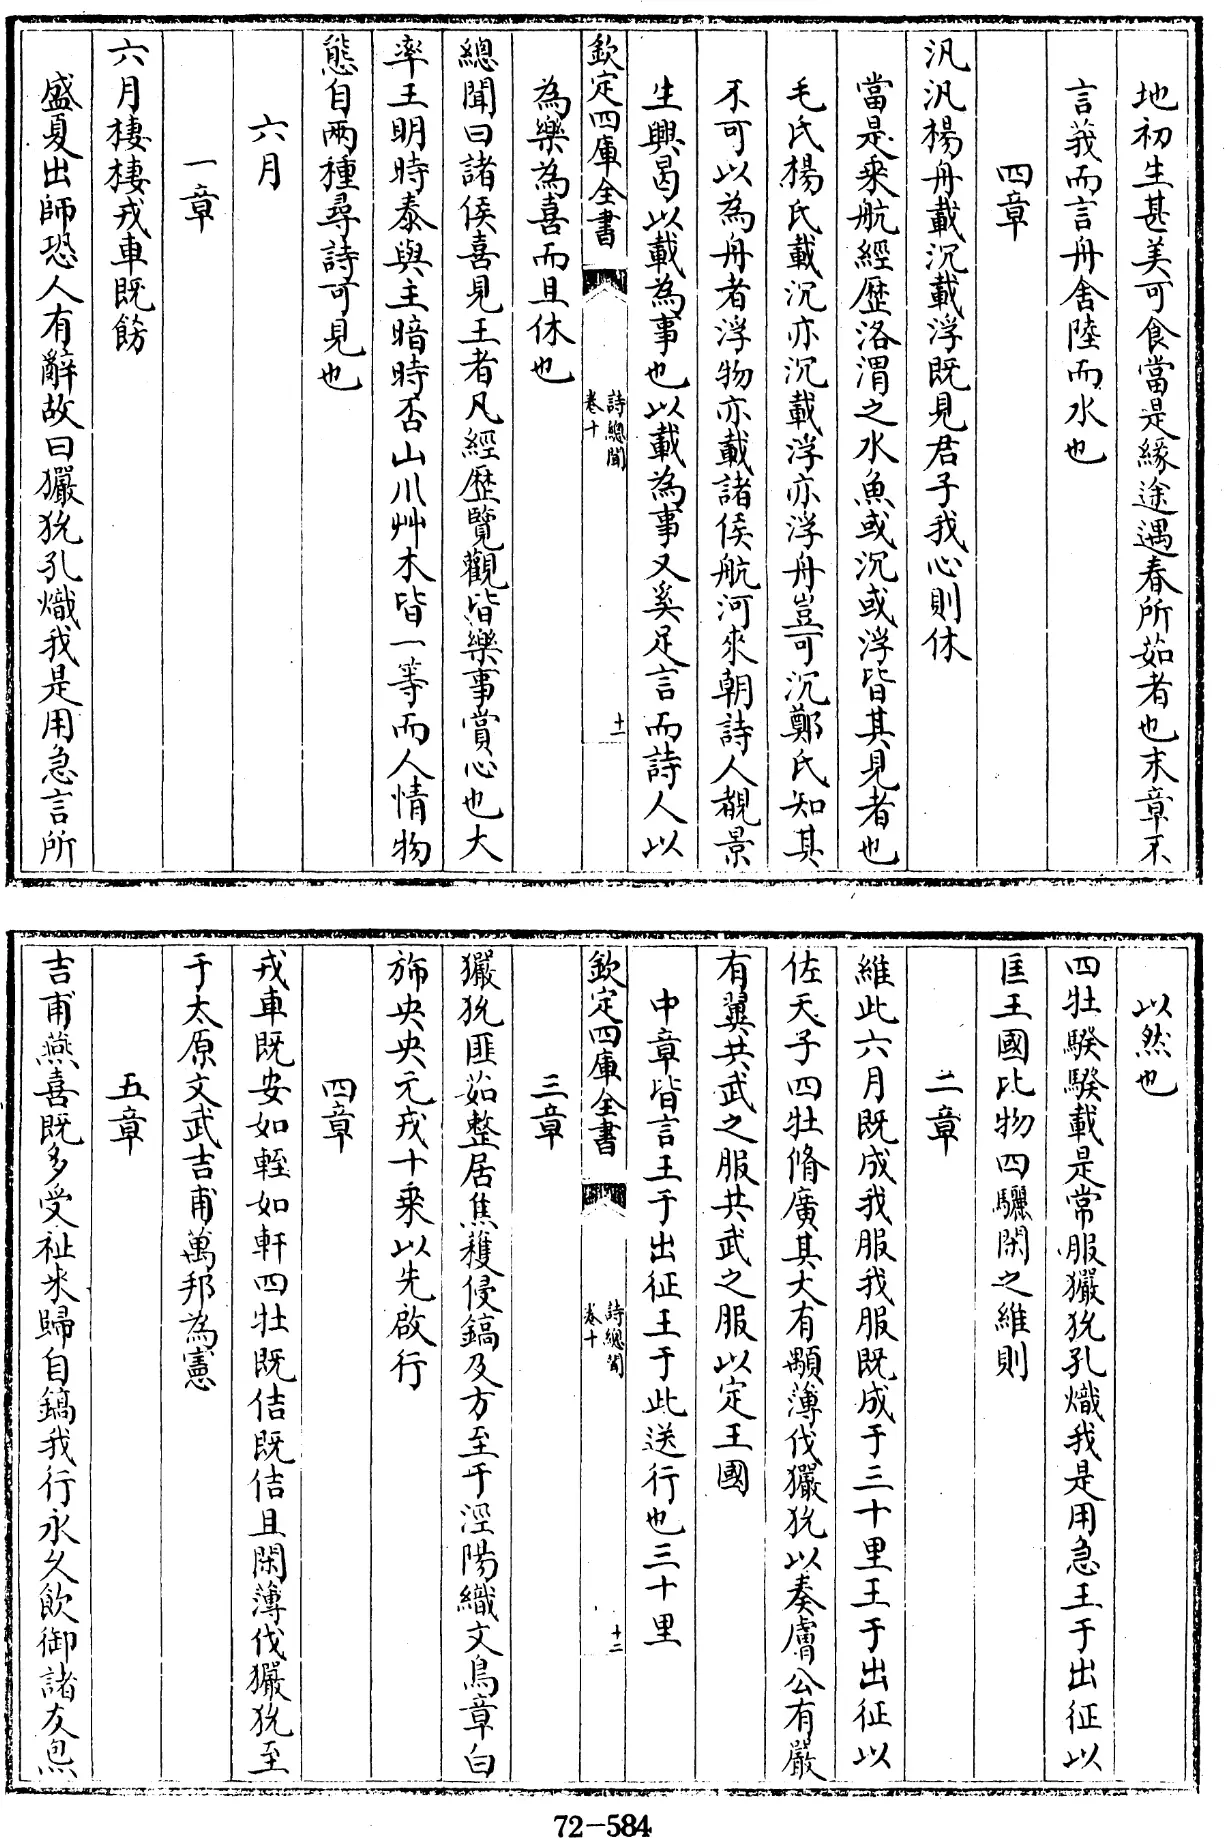 地初生甚美可食當是緣途遇春所茹者也末章不
言莪而言舟舍陸而水也
四章
汎汎楊舟載沉載浮既見君子我心則休
當是乘航經歷洛渭之水魚或沉或浮皆其見者也
毛氏楊氏載沉亦沉載浮亦浮舟豈可沉鄭氏知其
不可以為舟者浮物亦載諸侯航河來朝詩人覩景
生興曷以載為事也以載為事又奚足言而詩人以
欽定四庫全書
詩總聞
卷十
十一
為樂為喜而且休也
總聞曰諸侯喜見王者凡經歷覽觀皆樂事賞心也大
率王明時泰與主暗時否山川艸木皆一等而人情物
態自兩種尋詩可見也
六月
一章
六月棲棲戎車既飭
盛夏出師恐人有辭故曰玁狁孔熾我是用急言所
以然也
四牡騤騤載是常服玁狁孔熾我是用急王于出征以
匡王國比物四驪閑之維則
二章
維此六月既成我服我服既成于三十里王于出征以
佐天子四牡脩廣其大有顒薄伐玁狁以奏膚公有嚴
有翼共武之服共武之服以定王國
中章皆言王于出征王于此送行也三十里
欽定四庫全書
詩總聞
卷十
十二
三章
玁狁匪茹整居焦穫侵鎬及方至于涇陽織文鳥章白
斾央央元戎十乘以先啟行
四章
戎車既安如輊如軒四牡既佶既佶且閑薄伐玁狁至
于太原文武吉甫萬邦為憲
五章
吉甫燕喜既多受祉來歸自鎬我行永久飲御諸友炰
72-584